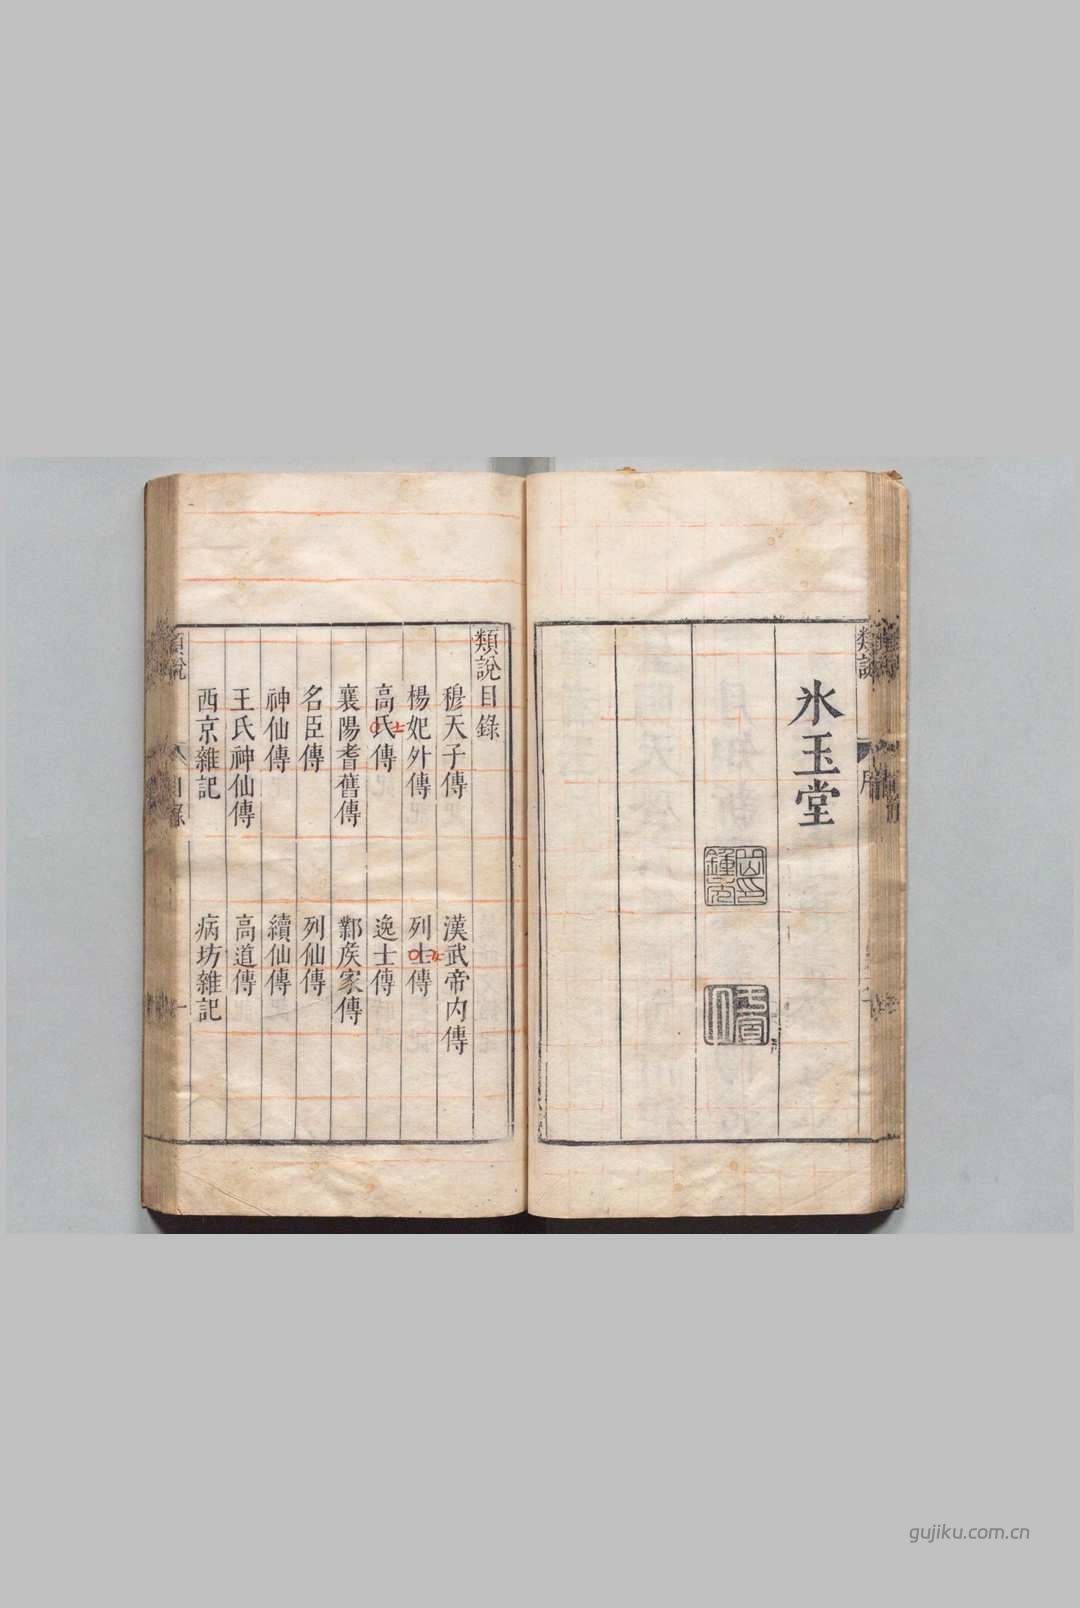 氷玉堂
類說
序
類說目錄
穆天子傳
漢武帝内傳
楊妃外傳
列士傳
女
高氏傳
士
逸士傳
襄陽耆舊傳
鄴矦家傳
名臣傳
列仙傳
神仙傳
續仙傳
王氏神仙傳
高道傳
西京雜記
病坊雜記
類說
目錄
一
gujiku.com.cn